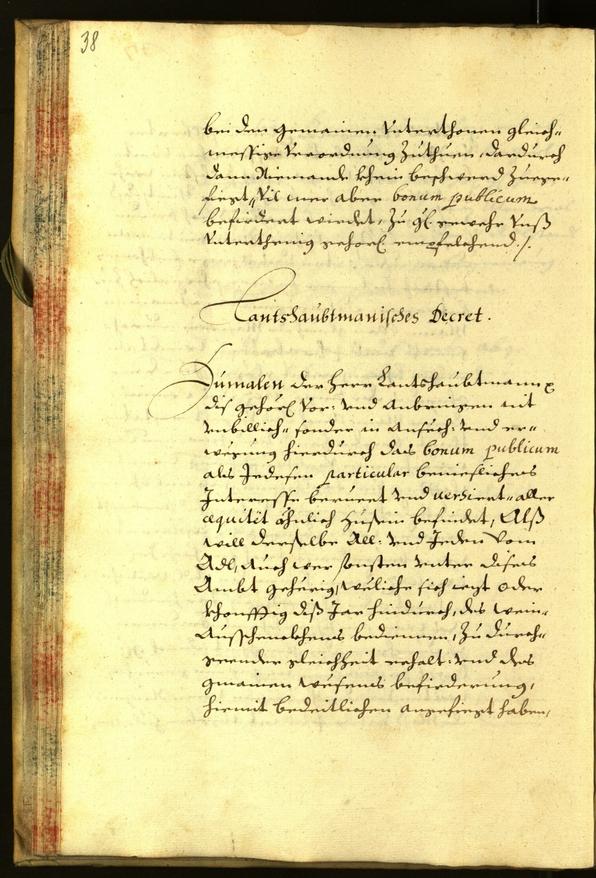 38
bei den gemainen Unterthonen gleich-
messige Verordnung Zuthuen, dardurch
dann Niemandt khein beschwerd Zuege-
fiegt, Vil mer aber bonum publicum
befirdert wirdet, Zu gl. gewehr Unß
Unterthenig gehorß empfelchend ./.
Lantshaubtmanisches Decret.
Zumalen der Herr Lantshaubtmann
diß gehorß Vor: und Anbringen nit
unbillich, sonder in Ansech: und er-
wegung hierdurch das bonum publicum
als Jedeßen particular beniefliches
Interesse beruert und versiert, aller
æquitüt ähnlich befindet, Alß
will derselbe All: und Jeden vom
Adl, Auch wer sonsten unter dises
Ambt gehörig, weliche sich iezt oder
khonfftig diß Jar hindurch, des wein-
Ausschenckhens bedienen, Zu durch-
geender gleichheit erhalt: und des
gmainen wesens befierderung,
hiemit bedeitlichen angefiegt haben,